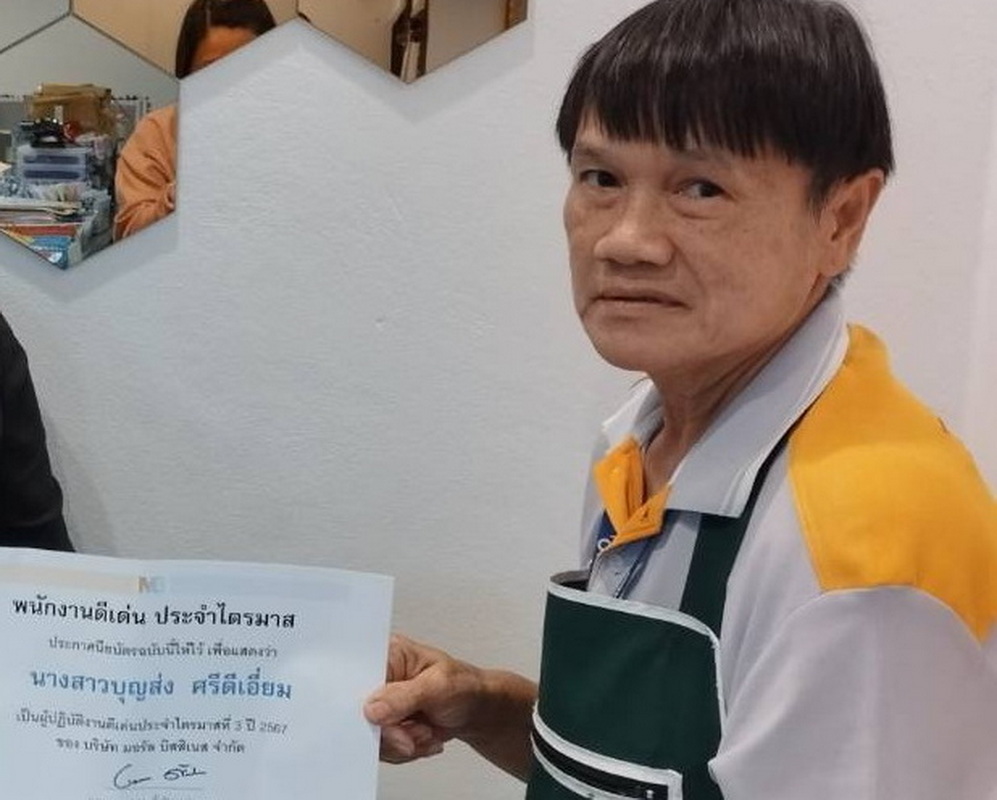 พนักงานดีเด่น ประจำไตรมาส
ประกาศนียบัตรฉบับนี้ให้ไว้ เพื่อแสดงว่า
นางสาวบุญส่ง ศรีดีเอี่ยม
เป็นผู้ปฏิบัติงานดีเด่นประจำไตรมาสที่ 3 ปี 2567
ของ บริษัท มอรัล บิสสิเนส จำกัด